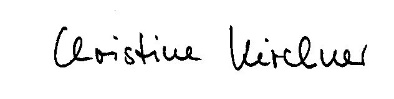 Christine Kirchner